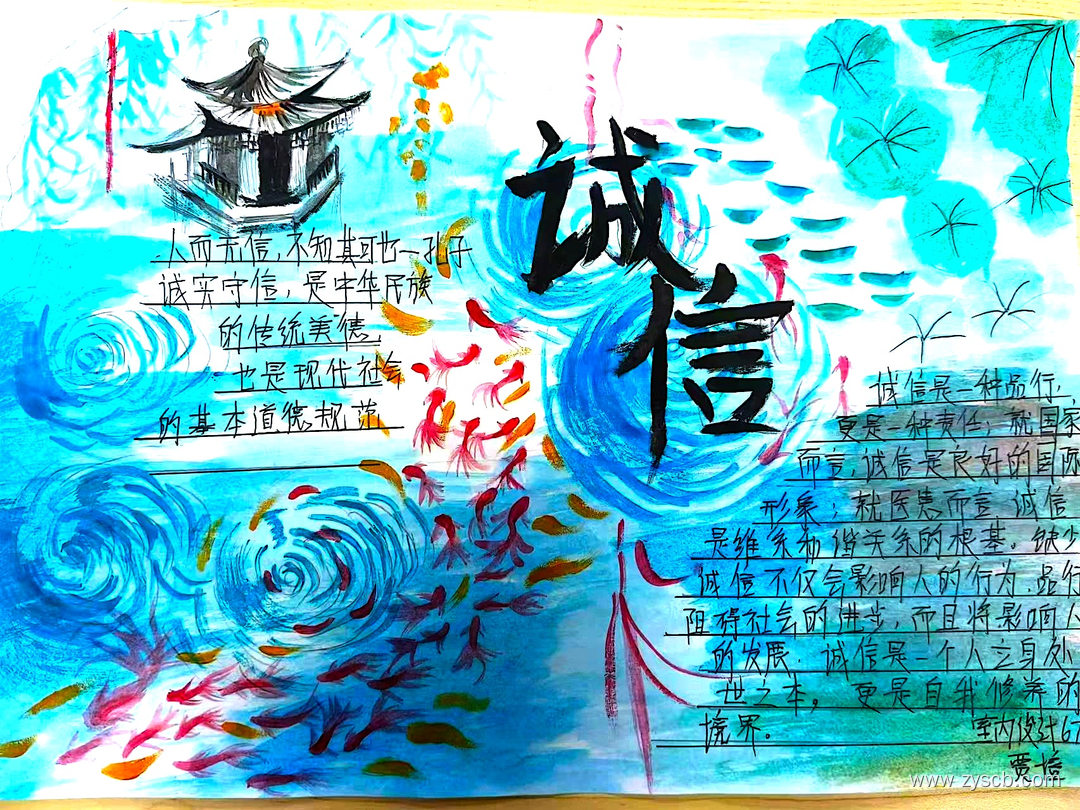 诚信
人而无信,不知其可也—孔子
诚实守信,是中华民族
的传统美德
也是现代社会
的基本道德规范
诚信是一种品行,
更是一种责任;就国家
而言,诚信是良好的国际
形象;就医患而言 诚信
是维系和谐关系的根基。缺少
诚信不仅会影响人的行为.品行
阻碍社会的进步,而且将影响人
的发展.诚信是一个人立身处
世之本,更是自我修养的
境界。
室内设计67
贾
www.zyscb.com